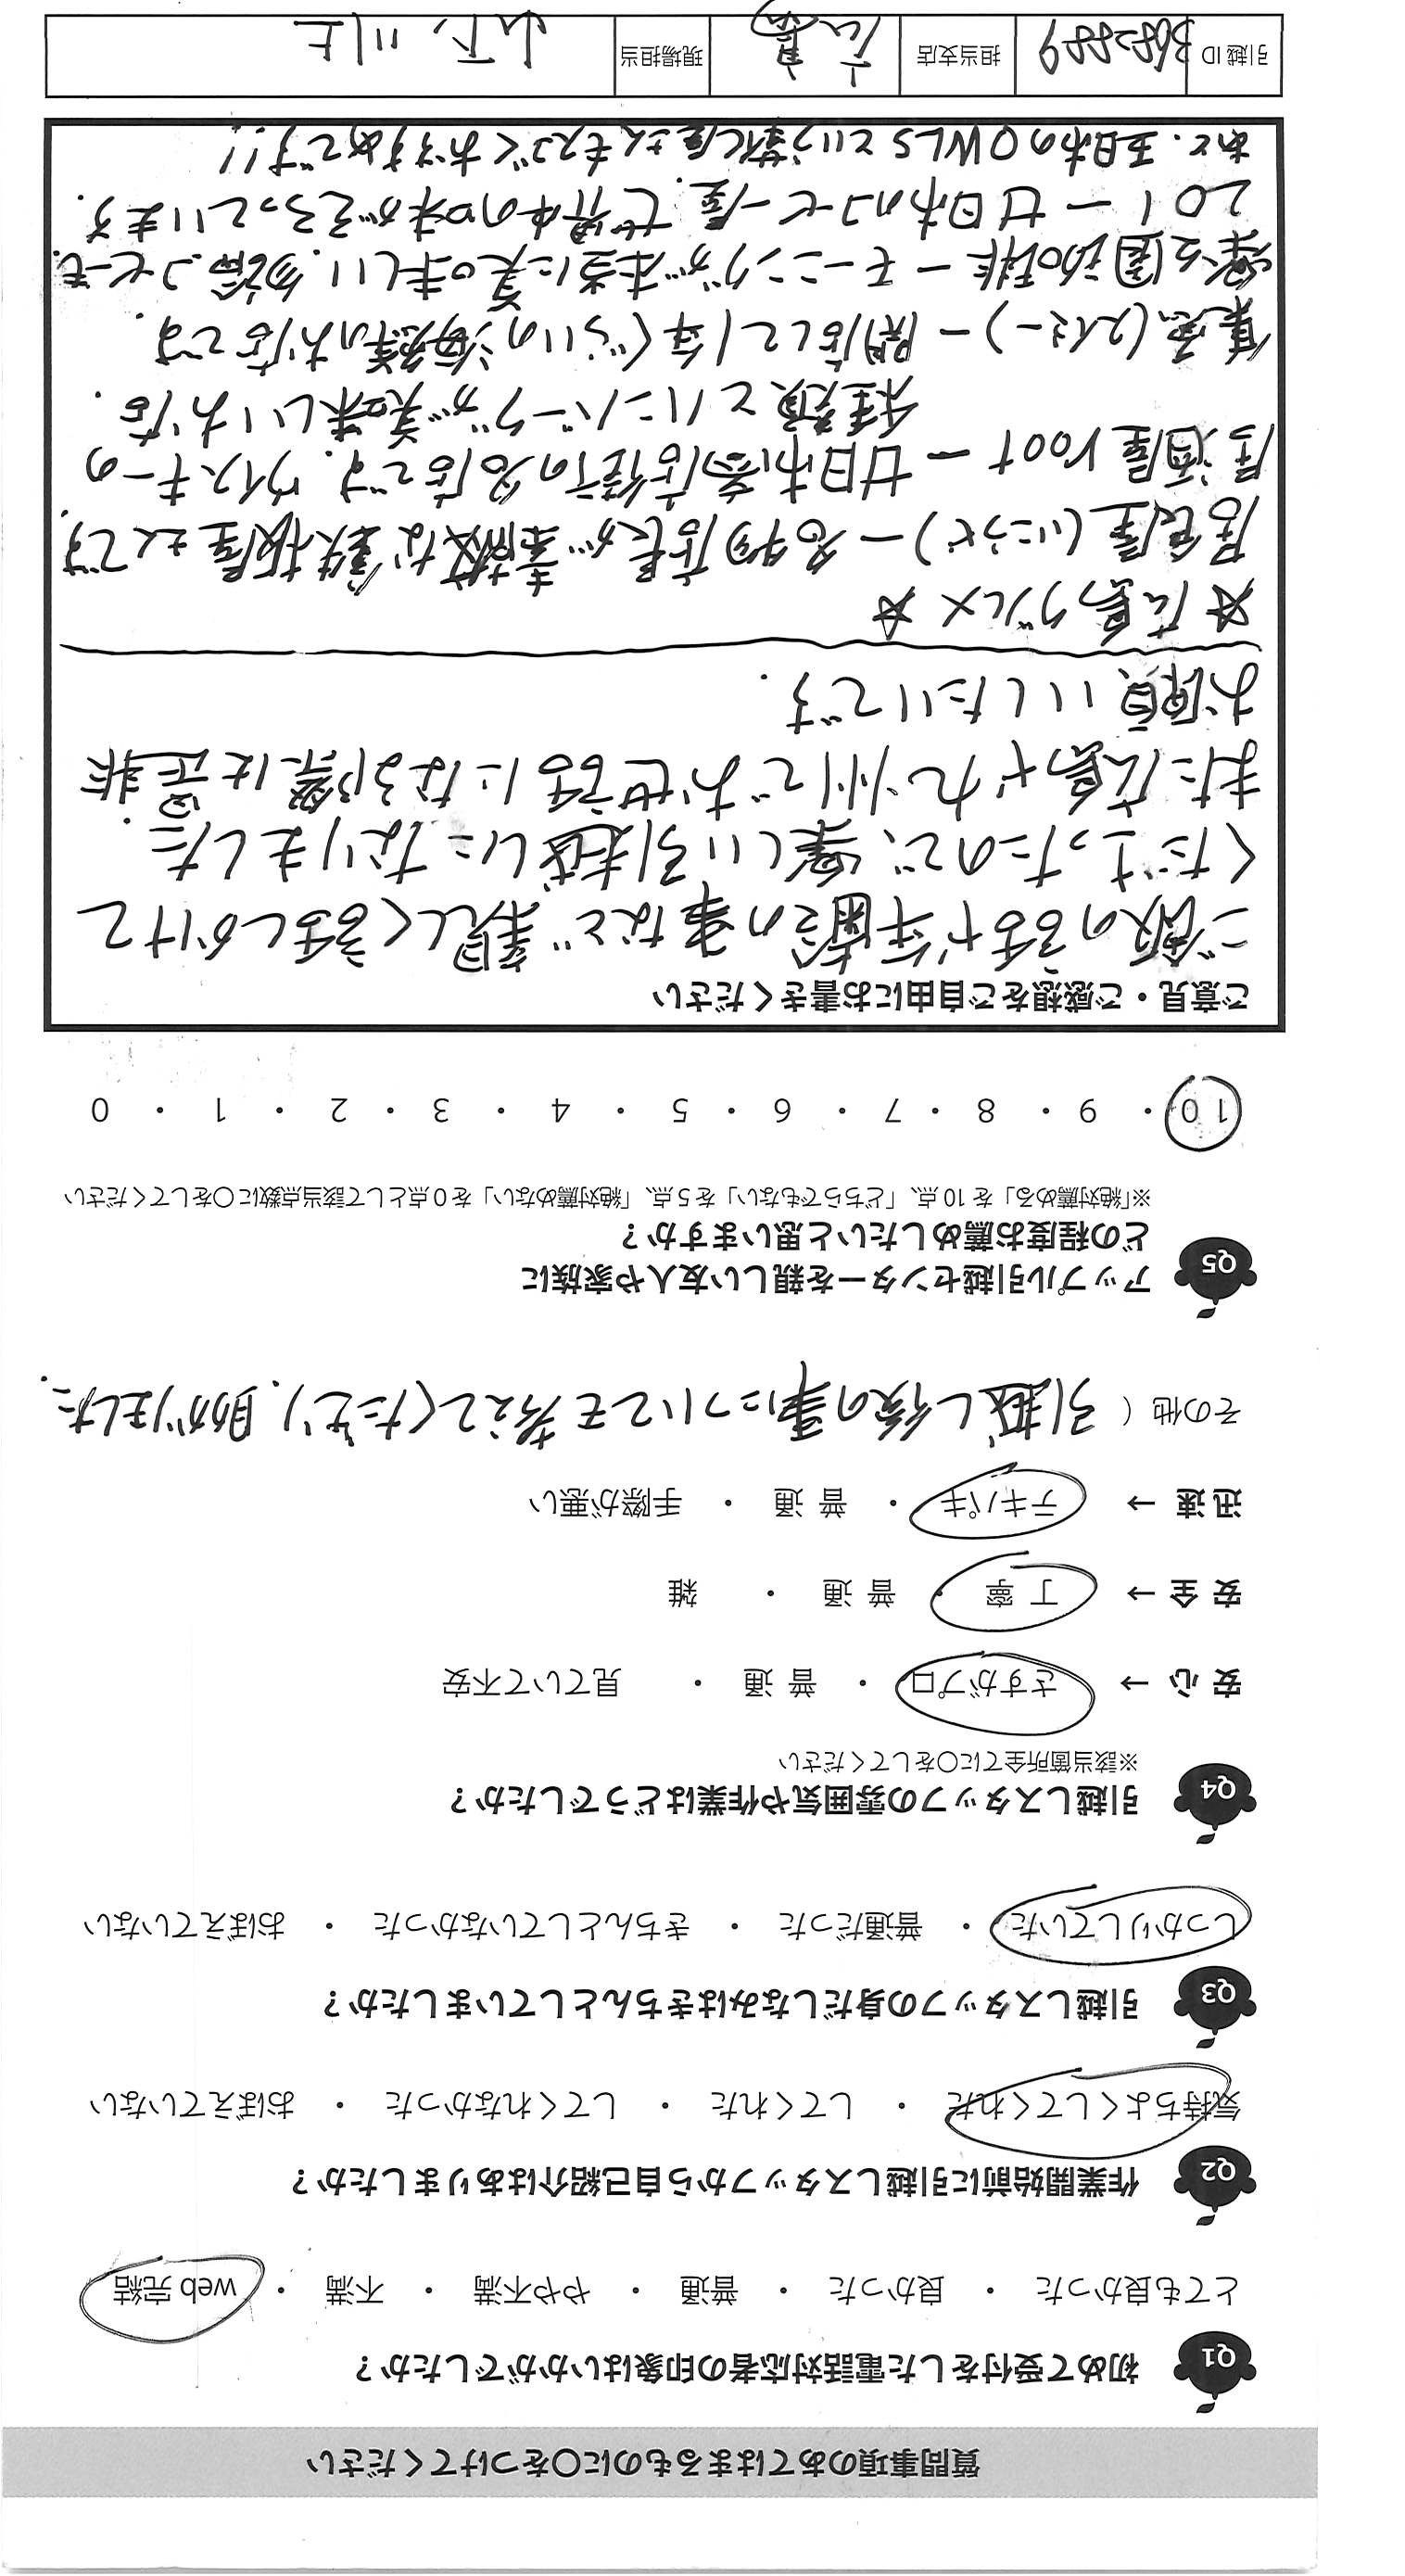 質問事項のあてはまるものに○をつけてください
Q1 初めて受付をした電話対応者の印象はいかがでしたか？
とても良かった ・ 良かった ・ 普通 ・ やや不満 ・ 不満 ・ web 完結
Q2 作業開始前に引越しスタッフから自己紹介はありましたか？
気持ちよくしてくれた ・ してくれた ・ してくれなかった ・ おぼえていない
Q3 引越しスタッフの身だしなみはきちんとしていましたか？
しっかりしていた ・ 普通だった ・ きちんとしていなかった ・ おぼえていない
Q4 引越しスタッフの雰囲気や作業はどうでしたか？
※該当箇所全てに○をしてください
安 心 → さすがプロ ・ 普 通 ・ 見ていて不安
安 全 → 丁 寧 ・ 普 通 ・ 雑
迅 速 → テキパキ ・ 普 通 ・ 手際が悪い
その他（ 引越し後の事についても考えてくださり、助かりました.
Q5 アップル引越センターを親しい友人や家族に
どの程度お薦めしたいと思いますか？
※「絶対薦める」を 10 点、「どちらでもない」を 5 点、「絶対薦めない」を 0 点として該当点数に○をしてください
10 ・ 9 ・ 8 ・ 7 ・ 6 ・ 5 ・ 4 ・ 3 ・ 2 ・ 1 ・ 0
ご意見・ご感想をご自由にお書きください
ご飯の話や年齢の事など親しく話しかけて
くださったので、楽しい引越しになりました.
また広島や九州でお世話になる際は是非
お願いしたいです.
☆広島グルメ☆
居食屋(いこうど) ー 名物店長が素敵な鉄板屋さんです.
居酒屋 root ー 廿日市高店街の名店です. ウイスキーの
種類とハンバーグが美味しいお店.
ー 開店して1年ぐらいの海鮮のお店です.
楽々園珈琲 ー モーニングが本当に美味しい. 勿論コーヒーも.
201 ー 廿日市のコーヒー屋. 世界中の味がそろっています.
あと、五日市のOWLSという靴屋さんもすごくおすすめです!!
引越 ID 3682889 担当支店 広島 現場担当 山下、川上